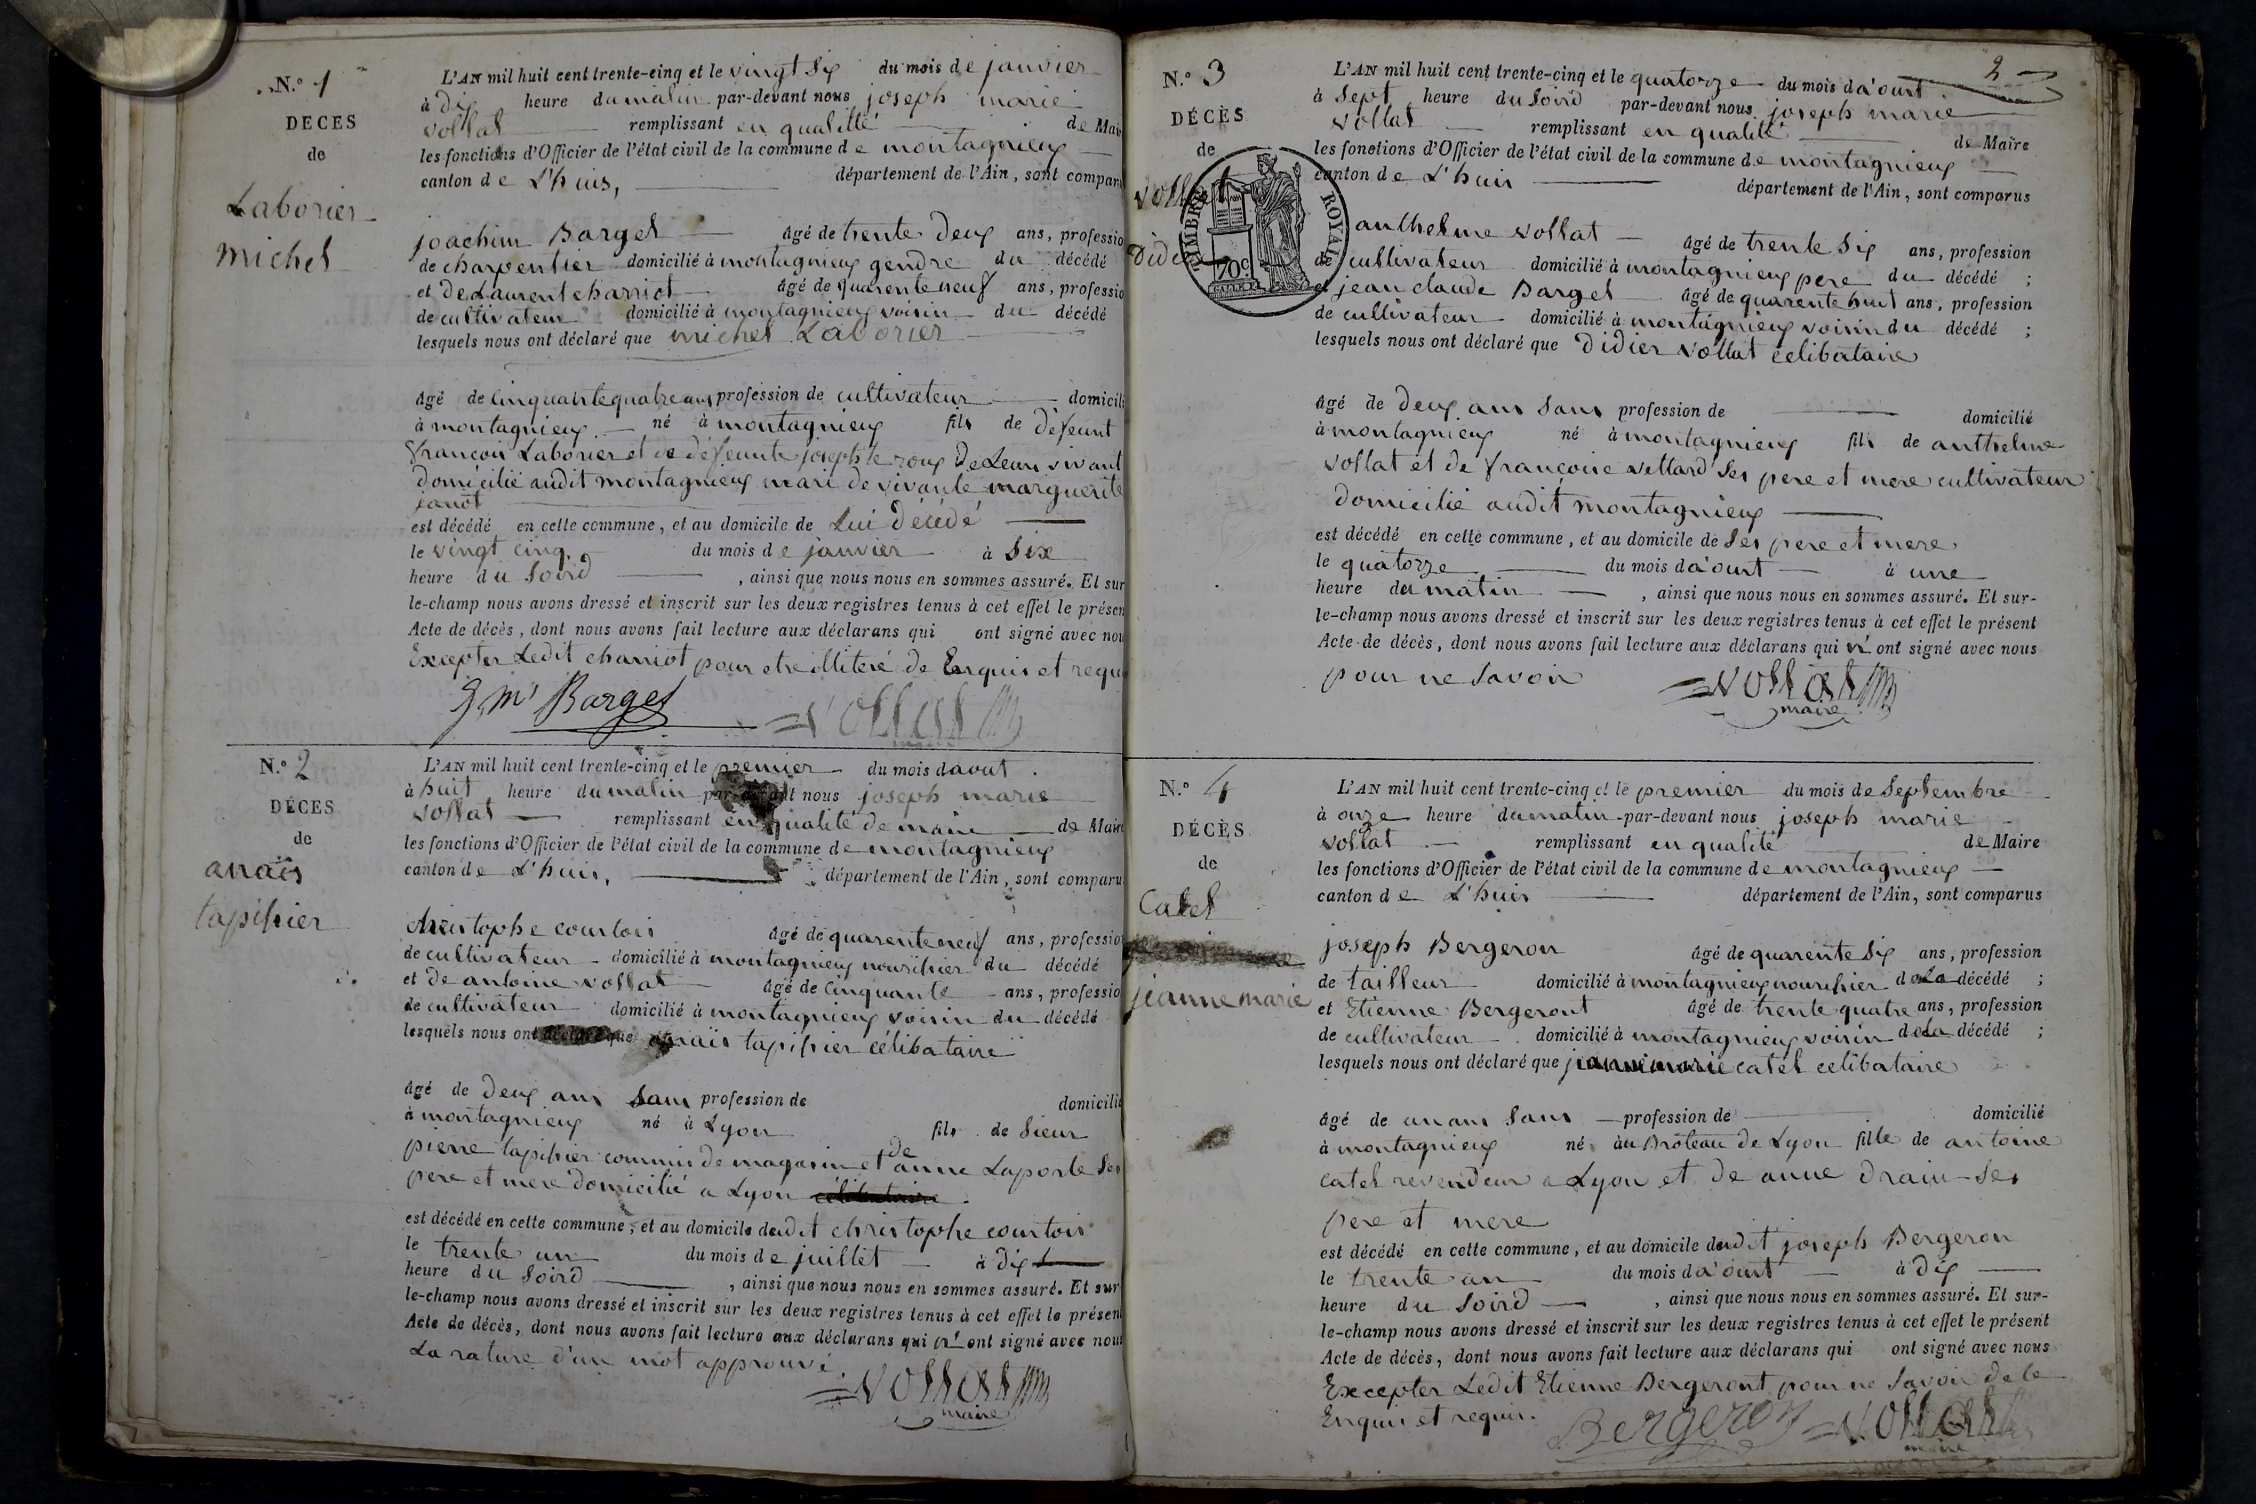 N.º 1
DECES
de
Laborier
michel
L'AN mil huit cent trente-cinq et le vingt six du mois de janvier
à dix heure du matin par-devant nous joseph marie
vollat remplissant en qualitté de Mai
les fonctions d'Officier de l'état civil de la commune de montagnieux
canton de L'huis, département de l'Ain, sont compar
joachim Barget âgé de trente deux ans, professio
de charpentier domicilié à montagnieux gendre du décédé
et de Laurent charriot âgé de quarente neuf ans, professio
de cultivateur domicilié à montagnieux voisin du décédé
lesquels nous ont déclaré que michel Laborier
âgé de cinquante quatre ans profession de cultivateur domicili
à montagnieux né à montagnieux fils de defeunt
francois Laborier et de défeunte josephte roux De Leur vivant
domicilié audit montagnieux mari de vivante marguerite
janot
est décédé en celle commune, et au domicile de Lui décédé
le vingt cinq du mois de janvier à six
heure du soird , ainsi que nous nous en sommes assuré. Et sur
le-champ nous avons dressé et inscrit sur les deux registres tenus à cet effet le présen
Acte de décès, dont nous avons fait lecture aux déclarans qui ont signé avec nou
Excepter Ledit charriot pour etre illiteré de Enquis et requi
J M Barget vollat
N.º 2
DÉCES
de
anaïs
tapissier
L'AN mil huit cent trente-cinq et le premier du mois daout
à huit heure du matin par-devant nous joseph marie
vollat remplissant en qualité de maire de Maire
les fonctions d'Officier de l'état civil de la commune de montagnieux
canton de L'huis, département de l'Ain, sont comparu
christophe courtois âgé de quarente neuf ans, professio
de cultivateur domicilié à montagnieux nourissier du décédé
et de antoine vollat âgé de cinquante ans, professio
de cultivateur domicilié à montagnieux voisin du décédé
lesquels nous ont déclaré que anaïs tapissier célibataire
âgé de deux ans sans profession de domicilié
à montagnieux né à Lyon fils de sieur
pierre tapissier commis de magasin et de anne Laporte ses
pere et mere domicilié a Lyon célibataire
est décédé en cette commune, et au domicile dudit christophe courtois
le trente un du mois de juillet à dix
heure du soird , ainsi que nous nous en sommes assuré. Et sur
le-champ nous avons dressé et inscrit sur les deux registres tenus à cet effet le présen
Acte de décès, dont nous avons fait lecture aux déclarans qui n' ont signé avec nous
La rature d'un mot approuvé.
vollat
maire
2
N.º 3
DÉCÈS
de
vollat
Didier
TIMBRE ROYAL
70 c
L'AN mil huit cent trente-cinq et le quatorze du mois d'aoust
à sept heure du soird par-devant nous joseph marie
vollat remplissant en qualité de Maire
les fonctions d'Officier de l'état civil de la commune de montagnieux
canton de L'huis département de l'Ain, sont comparus
anthelme vollat âgé de trente six ans, profession
de cultivateur domicilié à montagnieux pere du décédé ;
et jean claude Barget âgé de quarente huit ans, profession
de cultivateur domicilié à montagnieux voisin du décédé ;
lesquels nous ont déclaré que didier vollat celibataire
âgé de deux ans sans profession de domicilié
à montagnieux né à montagnieux fils de anthelme
vollat et de francoise vettard ses pere et mere cultivateur
domicilié audit montagnieux
est décédé en celle commune, et au domicile de ses pere et mere
le quatorze du mois d'aoust à une
heure du matin , ainsi que nous nous en sommes assuré. Et sur-
le-champ nous avons dressé et inscrit sur les deux registres tenus à cet effet le présent
Acte de décès, dont nous avons fait lecture aux déclarans qui n' ont signé avec nous
pour ne savoir
vollat
maire
N.º 4
DÉCÈS
de
Catel
jeanne marie
L'AN mil huit cent trente-cinq et le premier du mois de septembre
à onze heure du matin par-devant nous joseph marie
vollat remplissant en qualité de Maire
les fonctions d'Officier de l'état civil de la commune de montagnieux
canton de L'huis département de l'Ain, sont comparus
joseph Bergeron âgé de quarente six ans, profession
de tailleur domicilié à montagnieux nourissier de La décédé ;
et Etienne Bergeront âgé de trente quatre ans, profession
de cultivateur domicilié à montagnieux voisin de La décédé ;
lesquels nous ont déclaré que jeanne marie catel celibataire
âgé de un ans sans profession de domicilié
à montagnieux né au Broteau de Lyon fille de antoine
catel revendeur a Lyon et de anne drain ses
pere et mere
est décédé en cette commune, et au domicile dudit joseph Bergeron
le trente un du mois d'aoust à dix
heure du soird , ainsi que nous nous en sommes assuré. Et sur-
le-champ nous avons dressé et inscrit sur les deux registres tenus à cet effet le présent
Acte de décès, dont nous avons fait lecture aux déclarans qui ont signé avec nous
Excepter Ledit Etienne Bergeront pour ne savoir de ce
Enquis et requis.
Bergeron vollat
maire